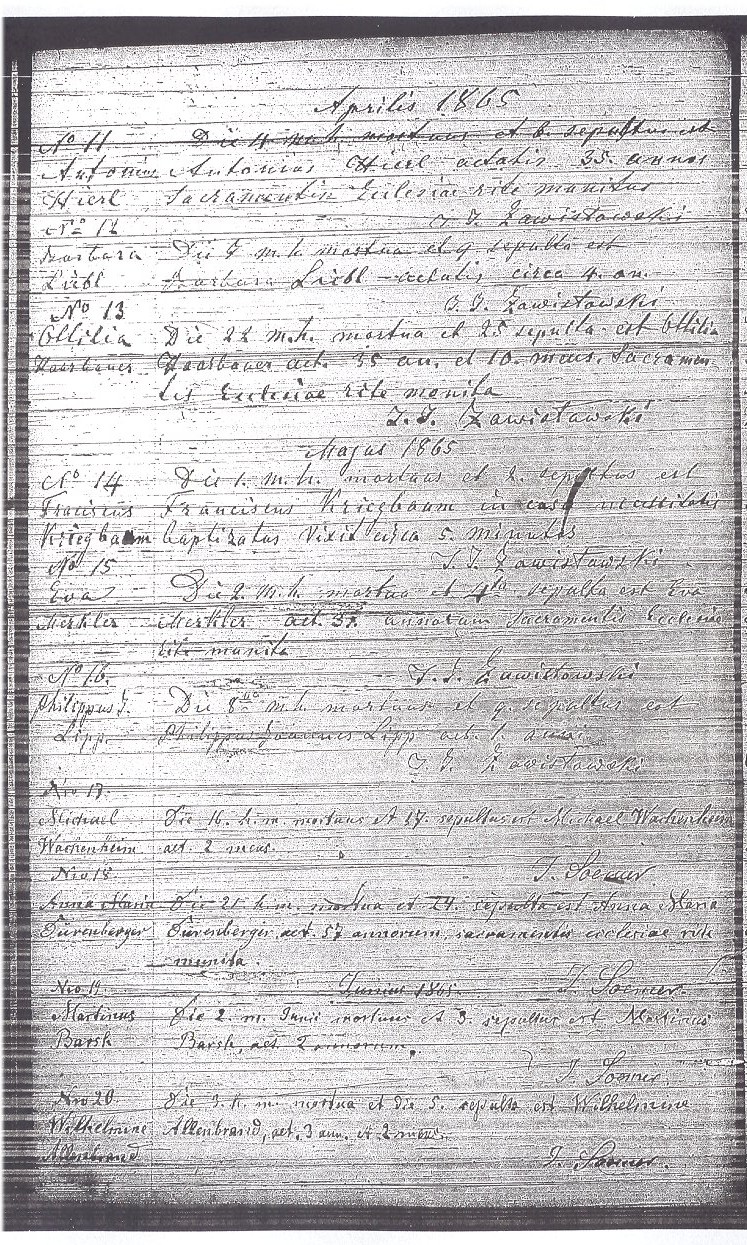 Aprilis 1865
No 11 Die 4 m.h. mortuus et 6. sepultus est
Antonius Antonius Hierl aetatis 35. annos
Hierl Sacramentis Eclesiae rite munitus
No 12 J. J. Zawistowski
Barbara Die 7 m.h. mortua et 9 sepulta est
Liebl Barbara Liebl aetatis circa 4. an.
No 13 J. J. Zawistowski
Ottilia Die 22 m.h. mortua et 25 sepulta est Ottilia
Haarbauer Haarbauer aet. 35 an. et 10. mens. Sacramen-
tis Eclesiae rite monita
J. J. Zawistawski
Majus 1865
No 14 Die 1. m.h. mortuus et 2. sepultus est
Franciscus Franciscus Kriegbaum in casa necessitatis
Kriegbaum baptizatus vixit circa 5. minutos
No 15 J. J. Zawistowski
Eva Die 2. m.h. mortua et 4ta sepulta est Eva
Merkler Merkler aet. 37. annorum Sacramentis Ecclesiae
rite munita
No 16. J. J. Zawistowski
Philippus J. Die 8 m.h. mortuus et 9. sepultus est
Lipp. Philippus Joannes Lipp aet. 1. anni.
J. J. Zawistowski
Nro 17.
Michael Die 16. h.m. mortuus et 17. sepultus est Michael Wachenheim
Wachenheim aet. 2 mens.
Nro 18. J. Soemer.
Anna Maria Die 21 h.m. mortua et 24. sepulta est Anna Maria
Durenberger Durenberger, aet. 57 annorum, sacramentis ecclesiae rite
munita.
Nro 19 Junius 1865. J. Soemer.
Martinus Die 2. m. Junii mortuus et 3. sepultus est Martinus
Barsh Barsh, aet. 2 annorum.
J. Soemer.
Nro 20. Die 3. h. m. mortua et die 5. sepulta est Wilhelmine
Wilhelmine Allenbrand, aet. 3 ann. et 2 mens.
Allenbrand J. Soemer.